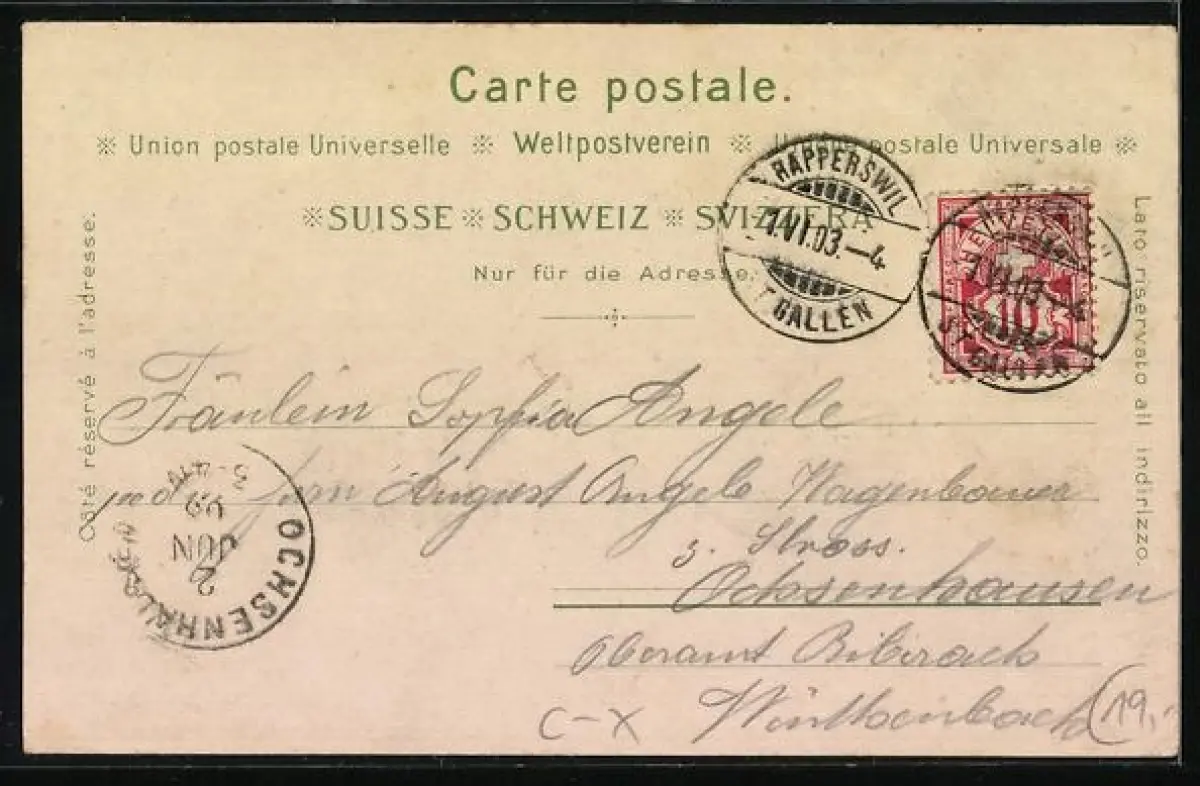 Carte postale.
※ Union postale Universelle ※ Weltpostverein ※ postale Universale ※
※ SUISSE ※ SCHWEIZ ※ SVIZZERA
Nur für die Adresse.
Côté réservé à l'adresse.
Lato riservato all indirizzo.
RAPPERSWIL
1.VI.03.–4
ST GALLEN
HELVETIA
10
1.VI.03
ST GALLEN
Fräulein Sophia Angele
August Angele Wagenbauer
z. Stross.
Ochsenhausen
Oberamt Biberach
OCHSENHAUSEN
2
JUN
03
3-4 N
C-X
19.-